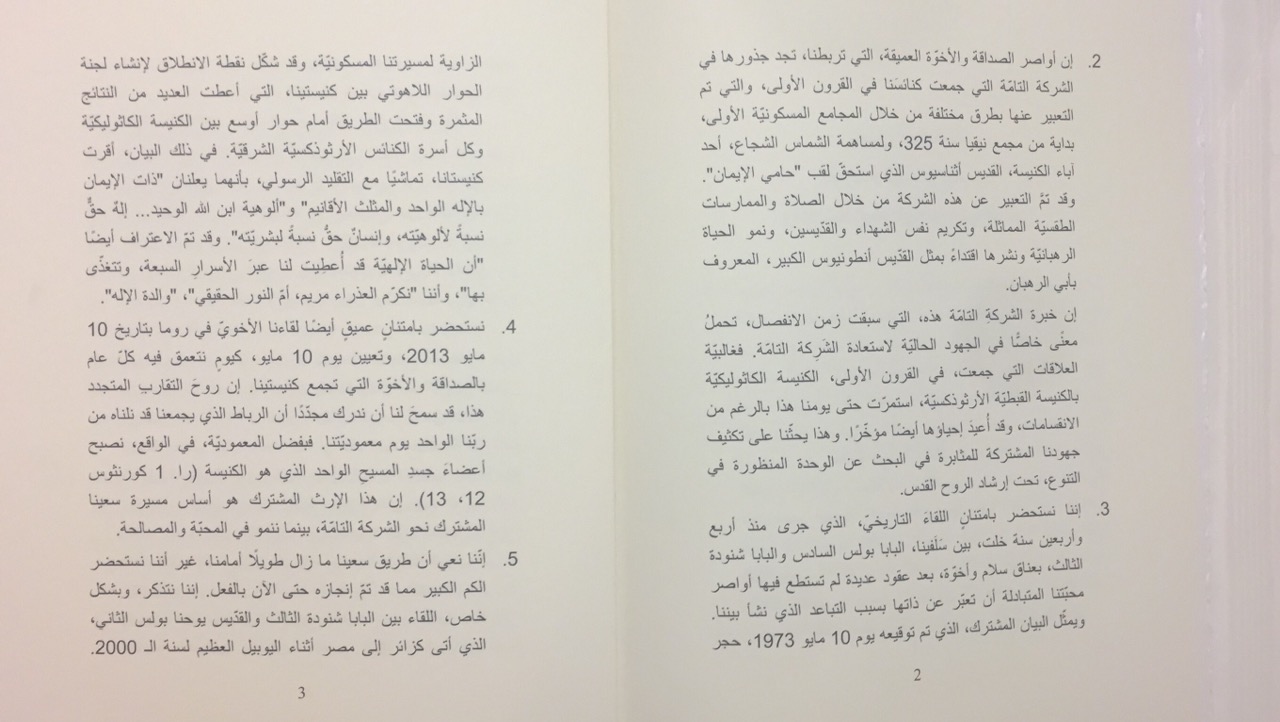 2. إن أواصر الصداقة والأخوّة العميقة، التي تربطنا، تجد جذورها في
الشركة التامّة التي جمعت كنائسَنا في القرون الأولى، والتي تم
التعبير عنها بطرق مختلفة من خلال المجامع المسكونيّة الأولى،
بداية من مجمع نيقيا سنة 325، ولمساهمة الشماس الشجاع، أحد
آباء الكنيسة، القديس أثناسيوس الذي استحقّ لقب "حامي الإيمان".
وقد تمَّ التعبير عن هذه الشركة من خلال الصلاة والممارسات
الطقسيّة المماثلة، وتكريم نفس الشهداء والقدّيسين، ونمو الحياة
الرهبانيّة ونشرها اقتداءً بمثل القدّيس أنطونيوس الكبير، المعروف
بأبي الرهبان.
إن خبرة الشركةِ التامّة هذه، التي سبقت زمن الانفصال، تحملُ
معنًى خاصًّا في الجهود الحاليّة لاستعادة الشَرِكة التامّة. فغالبيّة
العلاقات التي جمعت، في القرون الأولى، الكنيسة الكاثوليكيّة
بالكنيسة القبطيّة الأرثوذكسيّة، استمرّت حتى يومنا هذا بالرغم من
الانقسامات، وقد أُعيدَ إحياؤها أيضًا مؤخّرًا. وهذا يحثّنا على تكثيف
جهودنا المشتركة للمثابرة في البحث عن الوحدة المنظورة في
التنوع، تحت إرشاد الروح القدس.
3. إننا نستحضر بامتنانٍ اللقاءَ التاريخيّ، الذي جرى منذ أربع
وأربعين سنة خلت، بين سَلَفينا، البابا بولس السادس والبابا شنودة
الثالث، بعناق سلام وأخوّة، بعد عقود عديدة لم تستطع فيها أواصر
محبّتنا المتبادلة أن تعبّر عن ذاتها بسبب التباعد الذي نشأ بيننا.
ويمثّل البيان المشترك، الذي تم توقيعه يوم 10 مايو 1973، حجر
2
الزاوية لمسيرتنا المسكونيّة، وقد شكّل نقطة الانطلاق لإنشاء لجنة
الحوار اللاهوتي بين كنيستينا، التي أعطت العديد من النتائج
المثمرة وفتحت الطريق أمام حوار أوسع بين الكنيسة الكاثوليكيّة
وكل أسرة الكنائس الأرثوذكسيّة الشرقيّة. في ذلك البيان، أقرت
كنيستانا، تماشيًا مع التقليد الرسولي، بأنهما يعلنان "ذات الإيمان
بالإله الواحد والمثلث الأقانيم" و"ألوهية ابن الله الوحيد... إلهٌ حقٌّ
نسبةً لألوهيّته، وإنسانٌ حقٌّ نسبةً لبشريّته". وقد تمّ الاعتراف أيضًا
"أن الحياة الإلهيّة قد أُعطِيت لنا عبرَ الأسرارِ السبعة، وتتغذّى
بها"، وأننا "نكرّم العذراء مريم، أمّ النور الحقيقي"، "والدة الإله".
4. نستحضر بامتنانٍ عميقٍ أيضًا لقاءنا الأخويّ في روما بتاريخ 10
مايو 2013، وتعيين يوم 10 مايو، كيومٍ نتعمق فيه كلّ عام
بالصداقة والأخوّة التي تجمع كنيستينا. إن روحَ التقاربِ المتجدد
هذا، قد سمحَ لنا أن ندرك مجدّدًا أن الرباط الذي يجمعنا قد نلناه من
ربّنا الواحد يوم معموديّتنا. فبفضل المعموديّة، في الواقع، نصبح
أعضاءَ جسدِ المسيحِ الواحد الذي هو الكنيسة (را. 1 كورنثوس
12، 13). إن هذا الإرث المشترك هو أساس مسيرة سعينا
المشترك نحو الشركة التامّة، بينما ننمو في المحبّة والمصالحة.
5. إنّنا نعي أن طريق سعينا ما زال طويلًا أمامنا، غير أننا نستحضر
الكم الكبير مما قد تمّ إنجازه حتى الآن بالفعل. إننا نتذكر، وبشكل
خاص، اللقاء بين البابا شنودة الثالث والقدّيس يوحنا بولس الثاني،
الذي أتى كزائر إلى مصر أثناء اليوبيل العظيم لسنة الـ 2000.
3